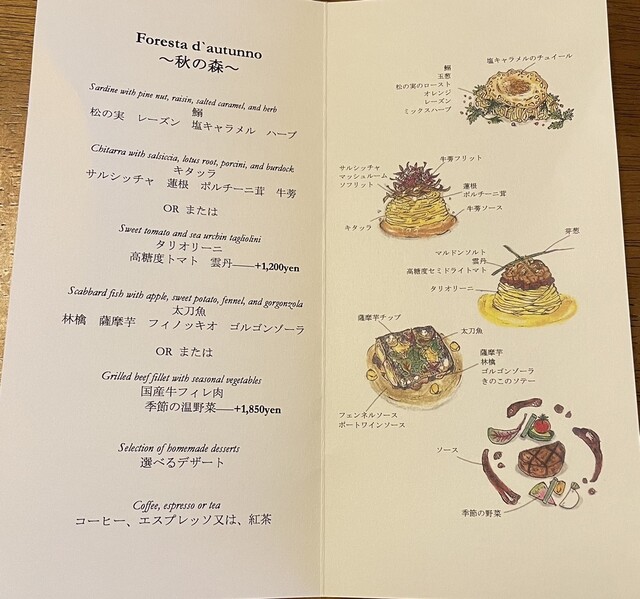 Foresta d`autunno
〜秋の森〜
Sardine with pine nut, raisin, salted caramel, and herb
鰯
松の実 レーズン 塩キャラメル ハーブ
Chitarra with salsiccia, lotus root, porcini, and burdock
キタッラ
サルシッチャ 蓮根 ポルチーニ茸 牛蒡
OR または
Sweet tomato and sea urchin tagliolini
タリオリーニ
高糖度トマト 雲丹――+1,200yen
Scabbard fish with apple, sweet potato, fennel, and gorgonzola
太刀魚
林檎 薩摩芋 フィノッキオ ゴルゴンゾーラ
OR または
Grilled beef fillet with seasonal vegetables
国産牛フィレ肉
季節の温野菜――+1,850yen
Selection of homemade desserts
選べるデザート
Coffee, espresso or tea
コーヒー、エスプレッソ又は、紅茶
塩キャラメルのチュイール
鰯
玉葱
松の実のロースト
オレンジ
レーズン
ミックスハーブ
牛蒡フリット
サルシッチャ
マッシュルーム
ソフリット
蓮根
ポルチーニ茸
牛蒡ソース
キタッラ
芽葱
マルドンソルト
雲丹
高糖度セミドライトマト
タリオリーニ
薩摩芋チップ
太刀魚
薩摩芋
林檎
ゴルゴンゾーラ
きのこのソテー
フェンネルソース
ポートワインソース
ソース
季節の野菜